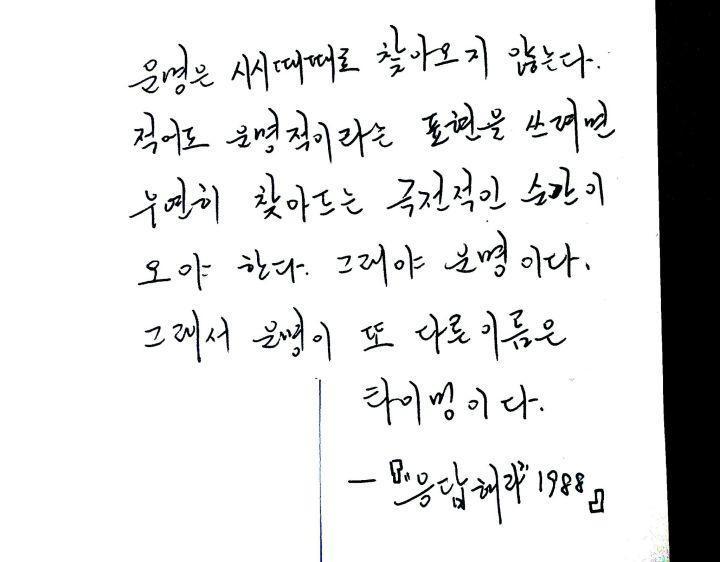 운명은 시시때때로 찾아오지 않는다.
적어도 운명적이라는 표현을 쓰려면
우연히 찾아드는 극적적인 순간이
오야 한다. 그래야 운명이다.
그래서 운명이 또 다른 이름은
타이밍이다.
- 『"응답해라" 1988』